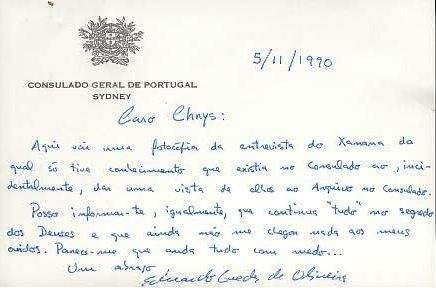 5/11/1990
CONSULADO GERAL DE PORTUGAL
SYDNEY
Caro Chrys:
Aqui vai uma fotocópia da entrevista do Xanana da
qual só tive conhecimento que existia no Consulado ao, inci-
dentalmente, dar uma vista de olhos ao Arquivo no Consulado.
Posso informar-te, igualmente, que continua "tudo" no segredo
dos Deuses e que ainda não me chegou nada aos meus
ouvidos. Parece-me que anda tudo com medo...
Um abraço
Eduardo Guedes de Oliveira